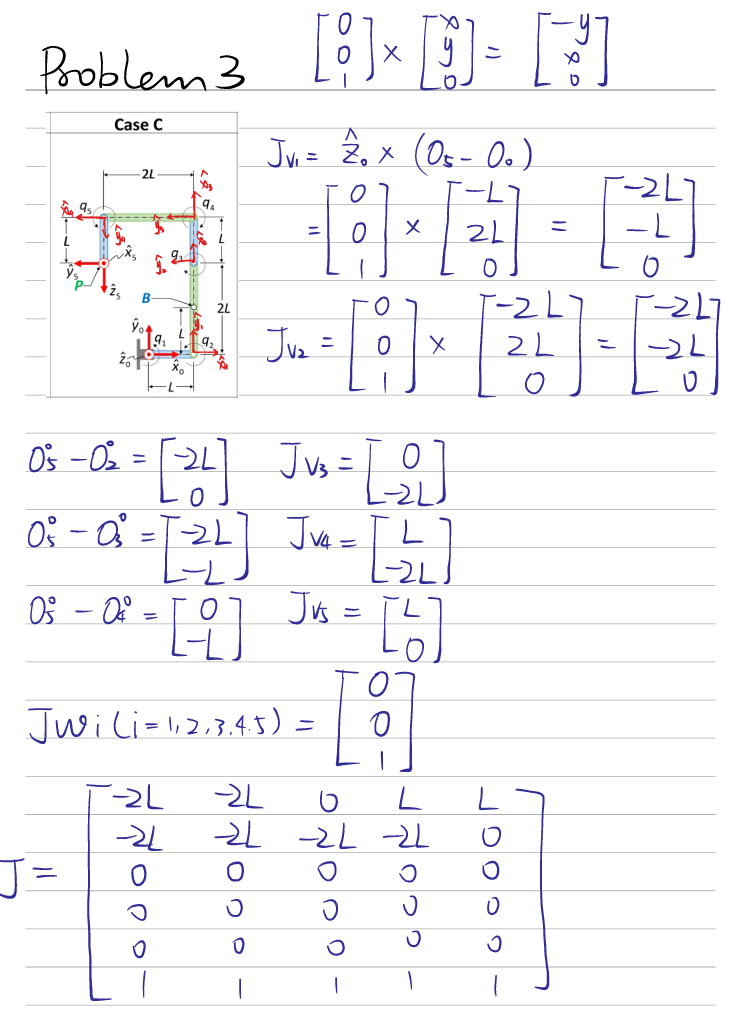 Problem 3
[0 0 1] × [x y 0] = [-y x 0]
Case C
2L
q₅
q₄
L
L
x̂₅
q₃
ŷ₅
P
ẑ₅
B
2L
ŷ₀
L
q₁
q₂
ẑ₀
x̂₀
L
Jv₁ = ẑ₀ × (O₅ - O₀)
= [0 0 1] × [-L 2L 0] = [-2L -L 0]
Jv₂ = [0 0 1] × [-2L 2L 0] = [-2L -2L 0]
O₅⁰ - O₂⁰ = [-2L 0] Jv₃ = [0 -2L]
O₅⁰ - O₃⁰ = [-2L -L] Jv₄ = [L -2L]
O₅⁰ - O₄⁰ = [0 -L] Jv₅ = [L 0]
Jwi (i=1,2,3.4.5) = [0 0 1]
J =
-2L -2L 0 L L
-2L -2L -2L -2L 0
0 0 0 0 0
0 0 0 0 0
0 0 0 0 0
1 1 1 1 1